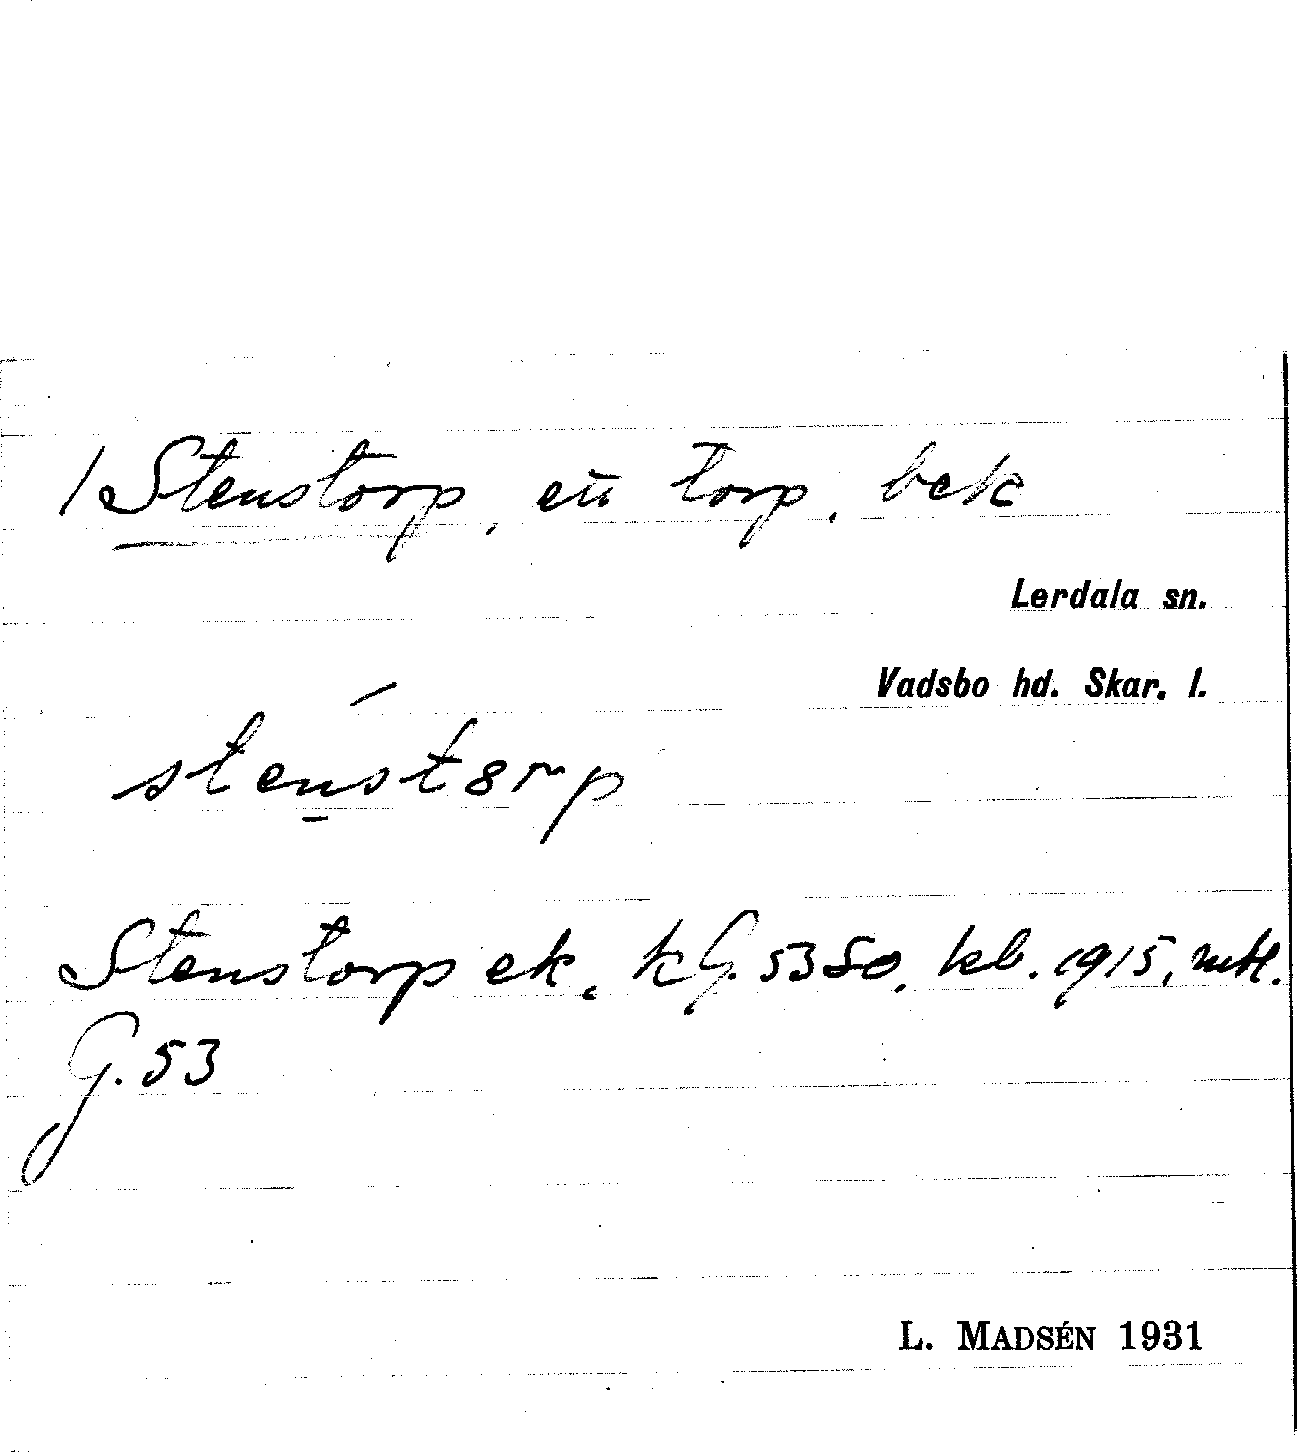 1 Stenstorp, ett torp, bek
Lerdala sn.
Vadsbo hd. Skar. l.
Stenstorp ek. kG. 53 SO, kb. 1915, mtl.
G. 53
L. MADSÉN 1931